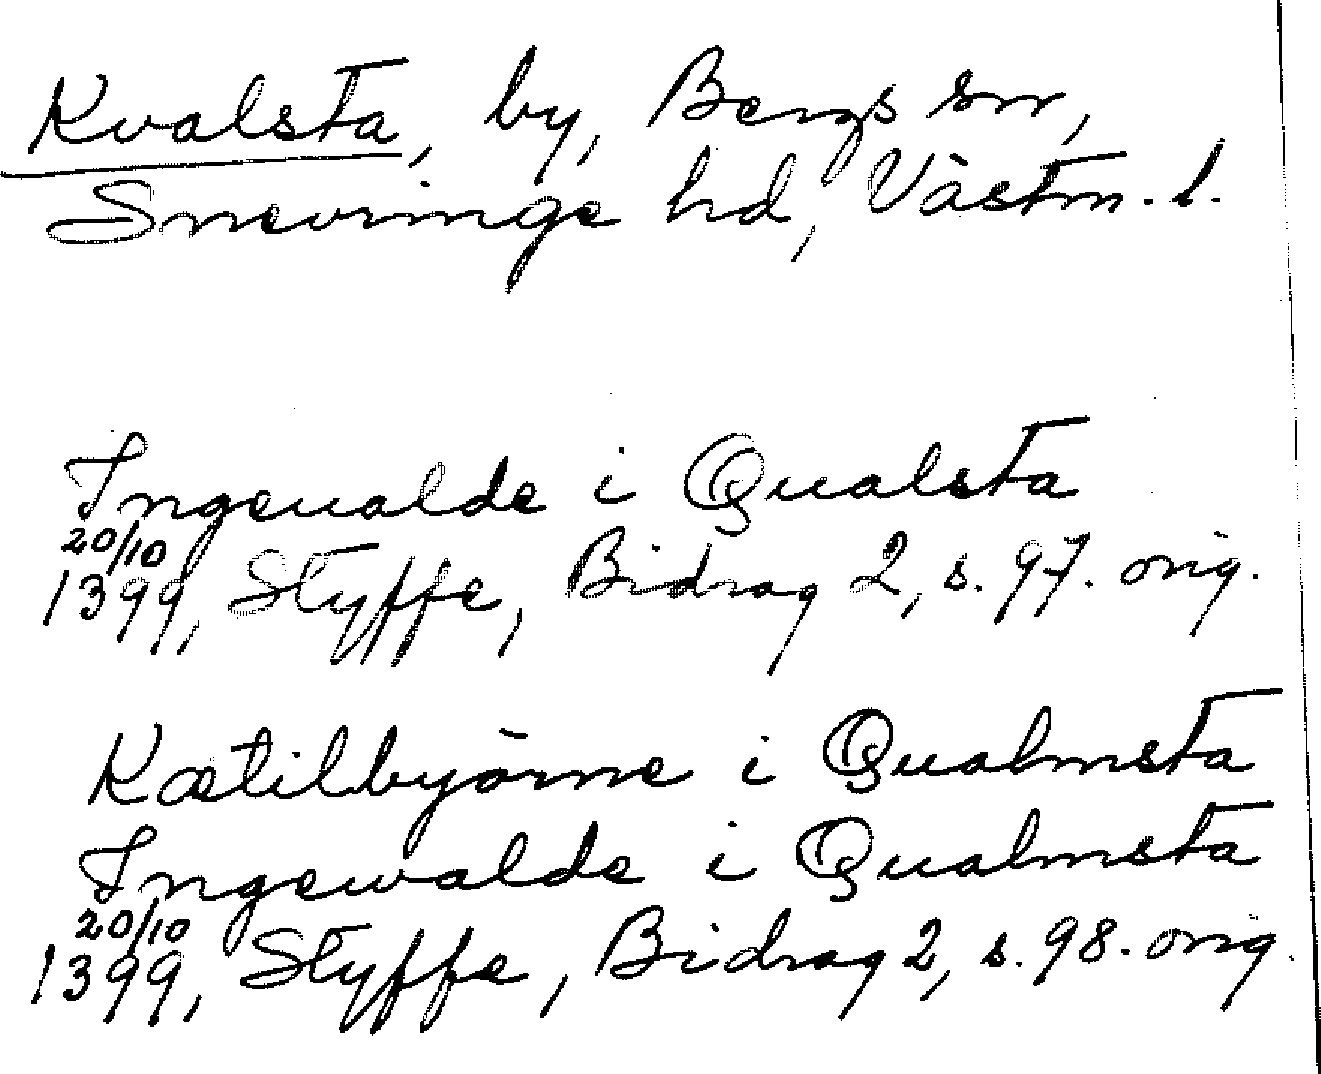 Kvalsta, by, Bergs sn,
Snevringe hd, Västm. l.
Ingeualde i Qualsta
20/10
1399, Styffe, Bidrag 2, s. 97. orig.
Kætilbyörne i Qualmsta
Ingewalde i Qualmsta
20/10
1399, Styffe, Bidrag 2, s. 98. orig.